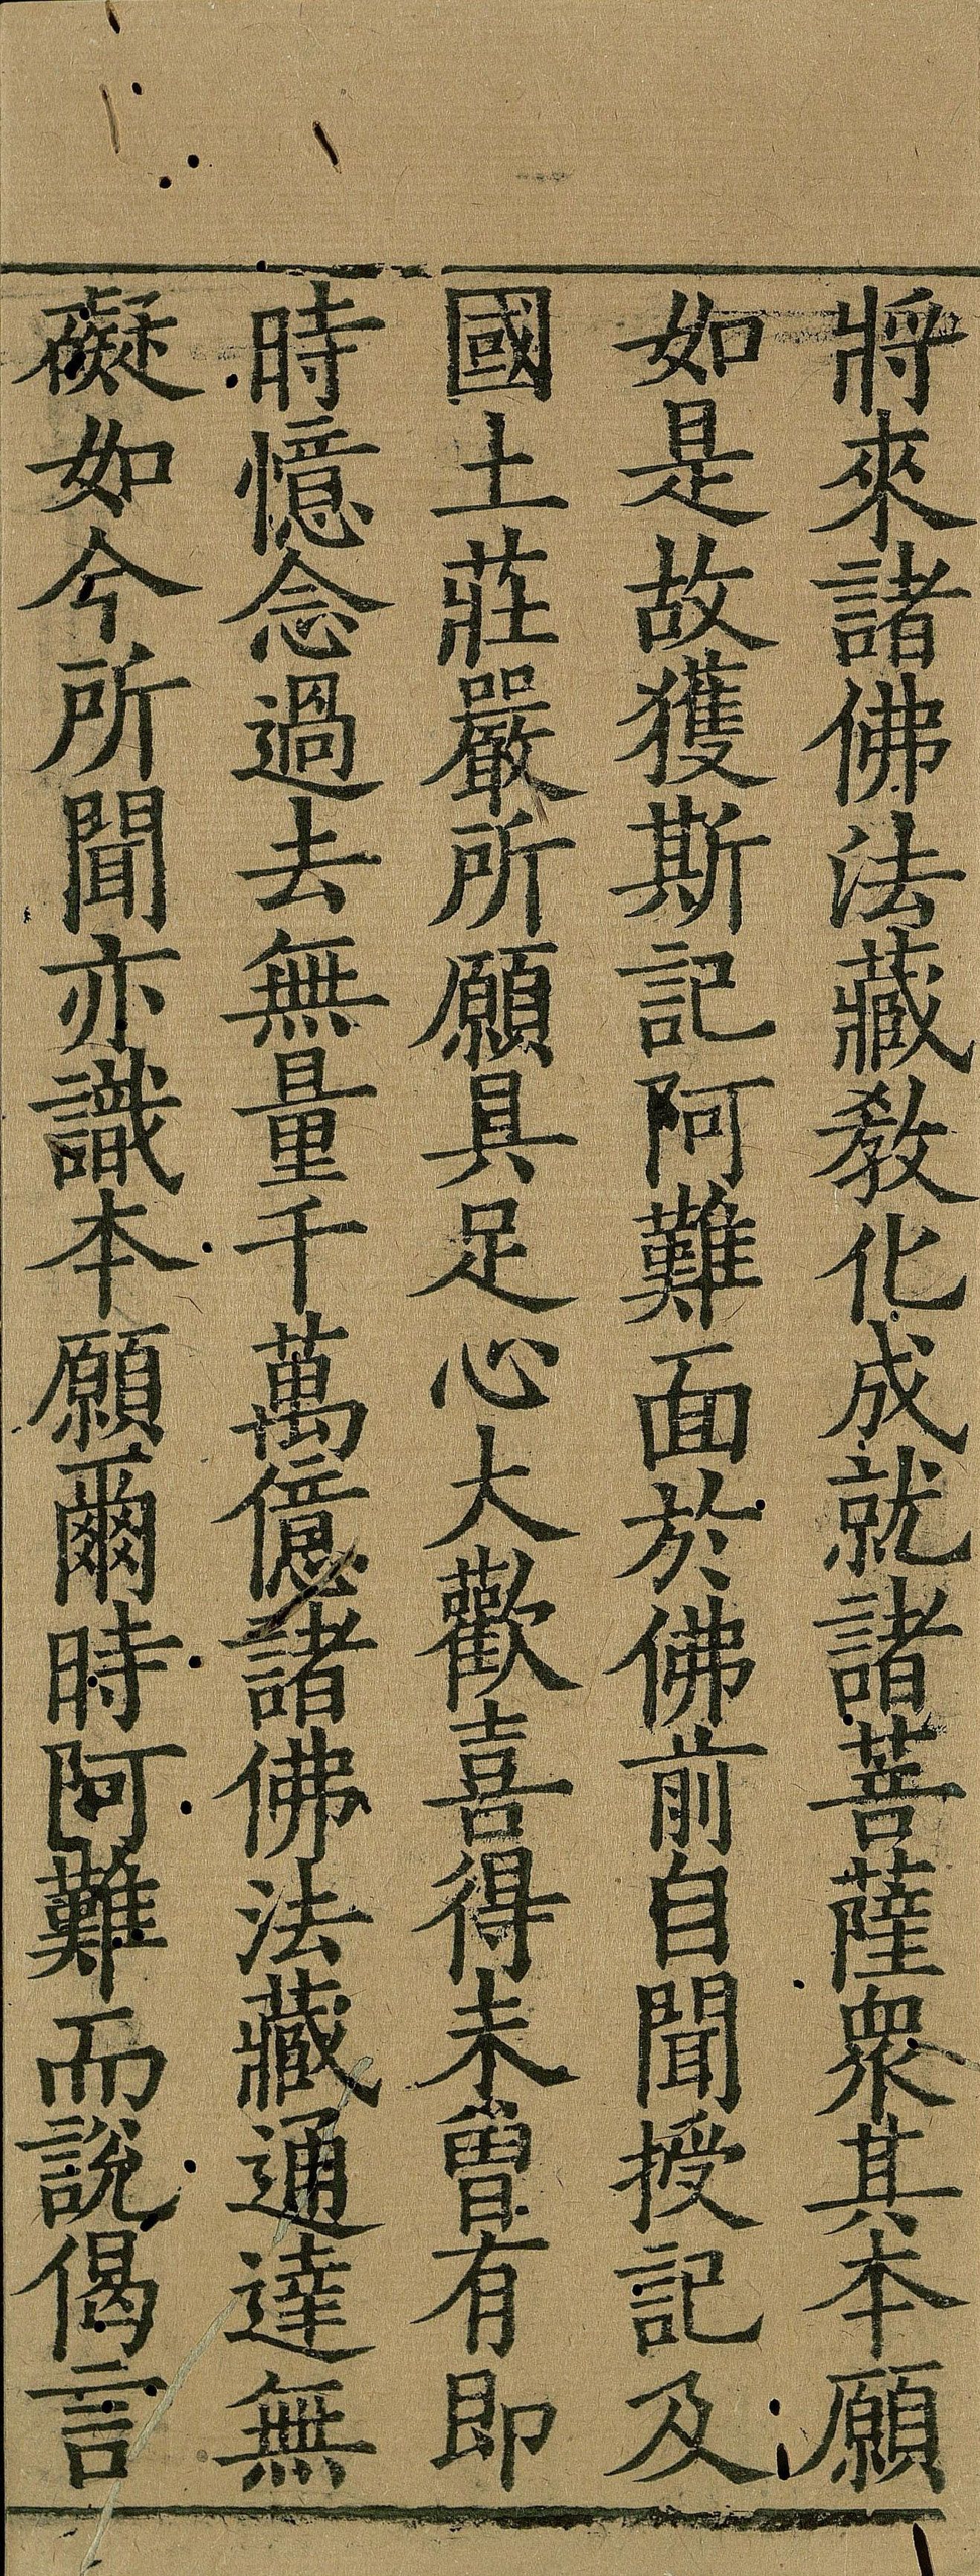 將來諸佛法藏教化成就諸菩薩衆其本願
如是故獲斯記阿難面於佛前自聞授記及
國土莊嚴所願具足心大歡喜得未曾有即
時憶念過去無量千萬億諸佛法藏通達無
礙如今所聞亦識本願爾時阿難而說偈言